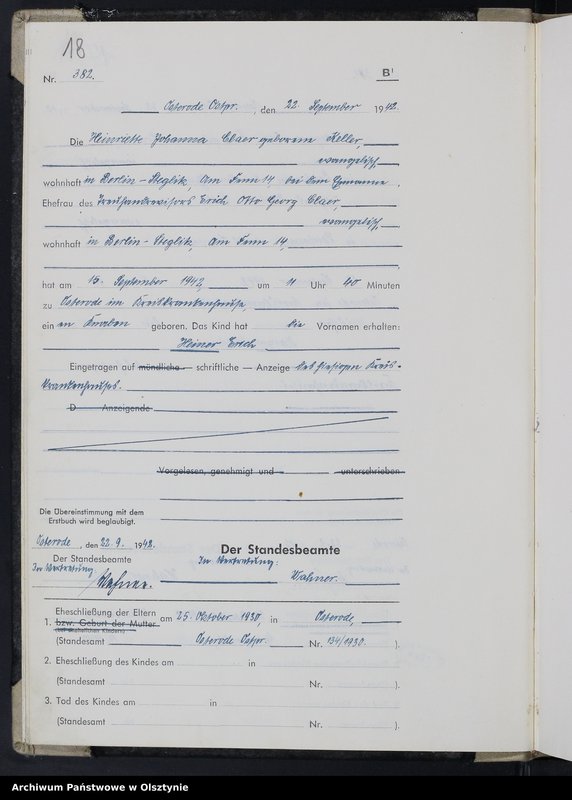 18
Nr. 382. B¹
Osterode Ostpr., den 22. September 1942.
Die Heinriette Johanna Claer geborene Keller,
evangelisch,
wohnhaft in Berlin-Steglitz, Am Fenn 14, bei dem Ehemanne,
Ehefrau des Erich Otto Georg Claer,
evangelisch,
wohnhaft in Berlin-Steglitz, Am Fenn 14,
hat am 15. September 1942, um 11 Uhr 40 Minuten
zu Osterode im Kreiskrankenhause,
ein en Knaben geboren. Das Kind hat die Vornamen erhalten:
Heiner Erich
Eingetragen auf mündliche - schriftliche - Anzeige des hiesigen Kreis-
krankenhauses.
D Anzeigende
Vorgelesen, genehmigt und unterschrieben
Die Übereinstimmung mit dem
Erstbuch wird beglaubigt.
Osterode, den 22. 9. 1942.
Der Standesbeamte
In Vertretung:
Der Standesbeamte
In Vertretung:
Wahner.
1. Eheschließung der Eltern am 25. Oktober 1930, in Osterode,
bzw. Geburt der Mutter
(bei unehelichen Kindern)
(Standesamt Osterode Ostpr. Nr. 134/1930. ).
2. Eheschließung des Kindes am in
(Standesamt Nr. ).
3. Tod des Kindes am in
(Standesamt Nr. ).
Archiwum Państwowe w Olsztynie